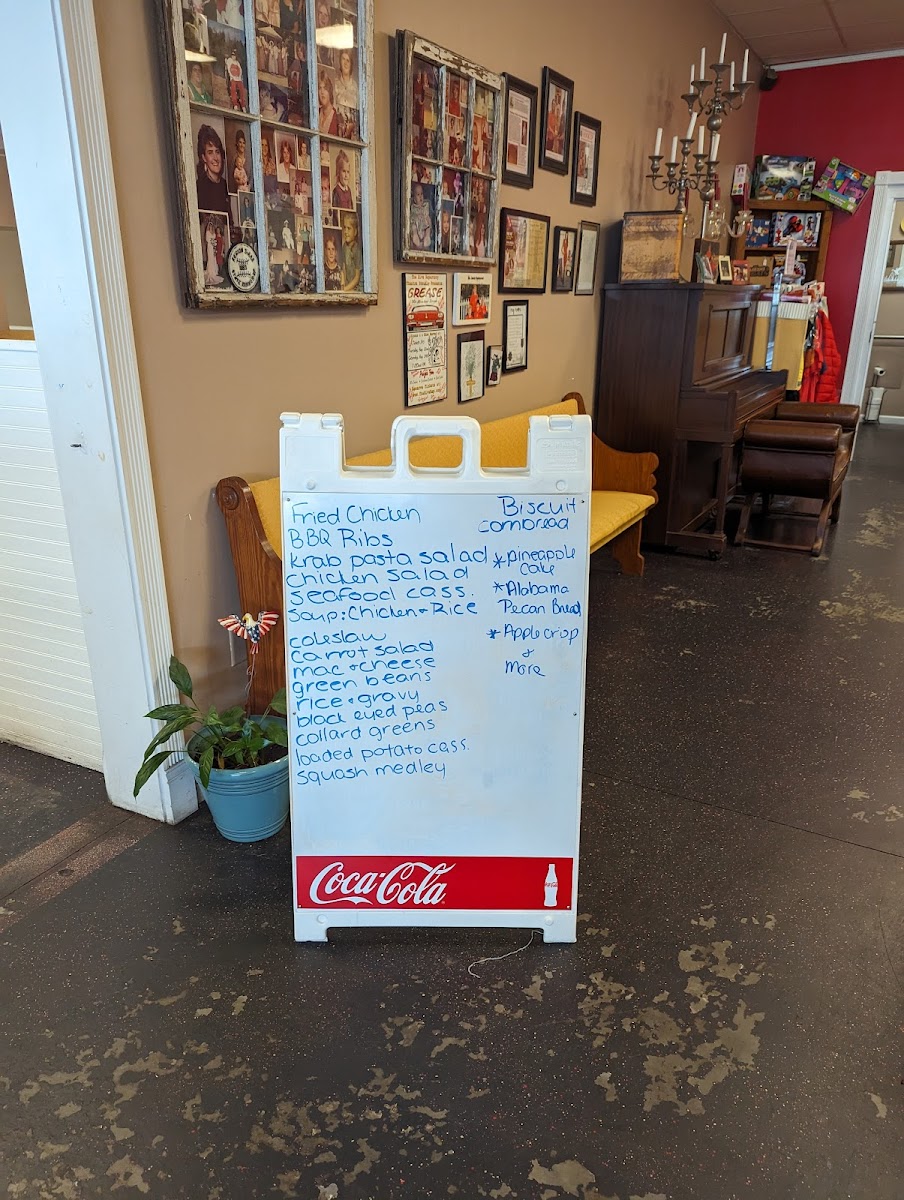 GREASE
Fried Chicken
BBQ Ribs
krab pasta salad
chicken salad
seafood cass.
Soup: Chicken + Rice
coleslaw
carrot salad
mac + cheese
green beans
rice + gravy
black eyed peas
collard greens
loaded potato cass.
squash medley
Biscuit
cornbread
*pineapple
cake
*Alabama
Pecan Bread
*Apple crisp
+
more
Coca-Cola